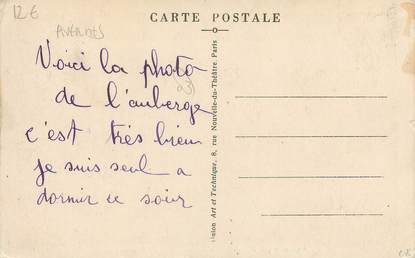 12 €
AVERNES
CARTE POSTALE
Voici la photo
de l'auberge
c'est très bien
je suis seul a
dormir ce soir
Union Art et Technique, 8, rue Nouvelle-du-Théâtre, Paris